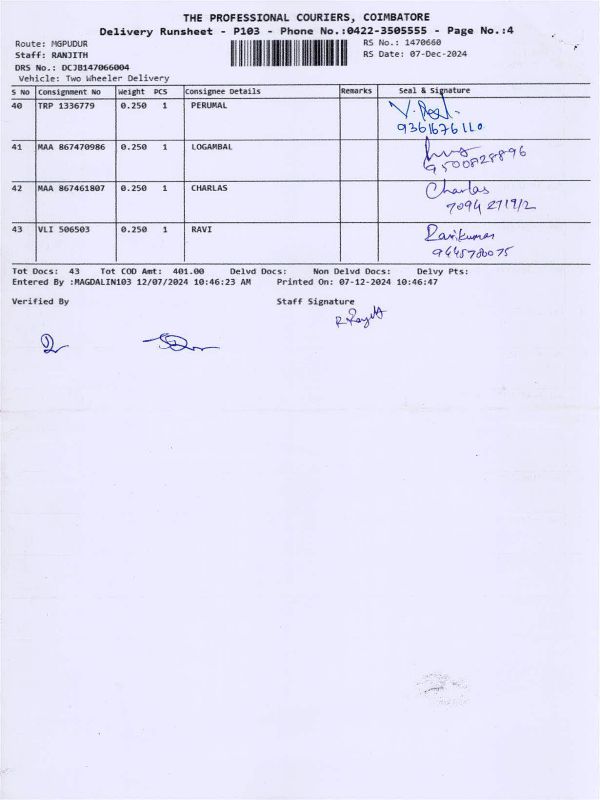 THE PROFESSIONAL COURIERS, COIMBATORE
Delivery Runsheet - P103 - Phone No.:0422-3505555 - Page No.:4
Route: MGPUDUR
RS No.: 1470660
Staff: RANJITH
RS Date: 07-Dec-2024
DRS No.: DCJB147066004
Vehicle: Two Wheeler Delivery
S No Consignment No Weight PCS Consignee Details Remarks Seal & Signature
40 TRP 1336779 0.250 1 PERUMAL
9361676110
41 MAA 867470986 0.250 1 LOGAMBAL
9500828896
42 MAA 867461807 0.250 1 CHARLAS Charlas
43 VLI 506503 0.250 1 RAVI Ravikumar
9445780075
Tot Docs: 43 Tot COD Amt: 401.00 Delvd Docs: Non Delvd Docs: Delvy Pts:
Entered By :MAGDALIN103 12/07/2024 10:46:23 AM Printed On: 07-12-2024 10:46:47
Verified By Staff Signature